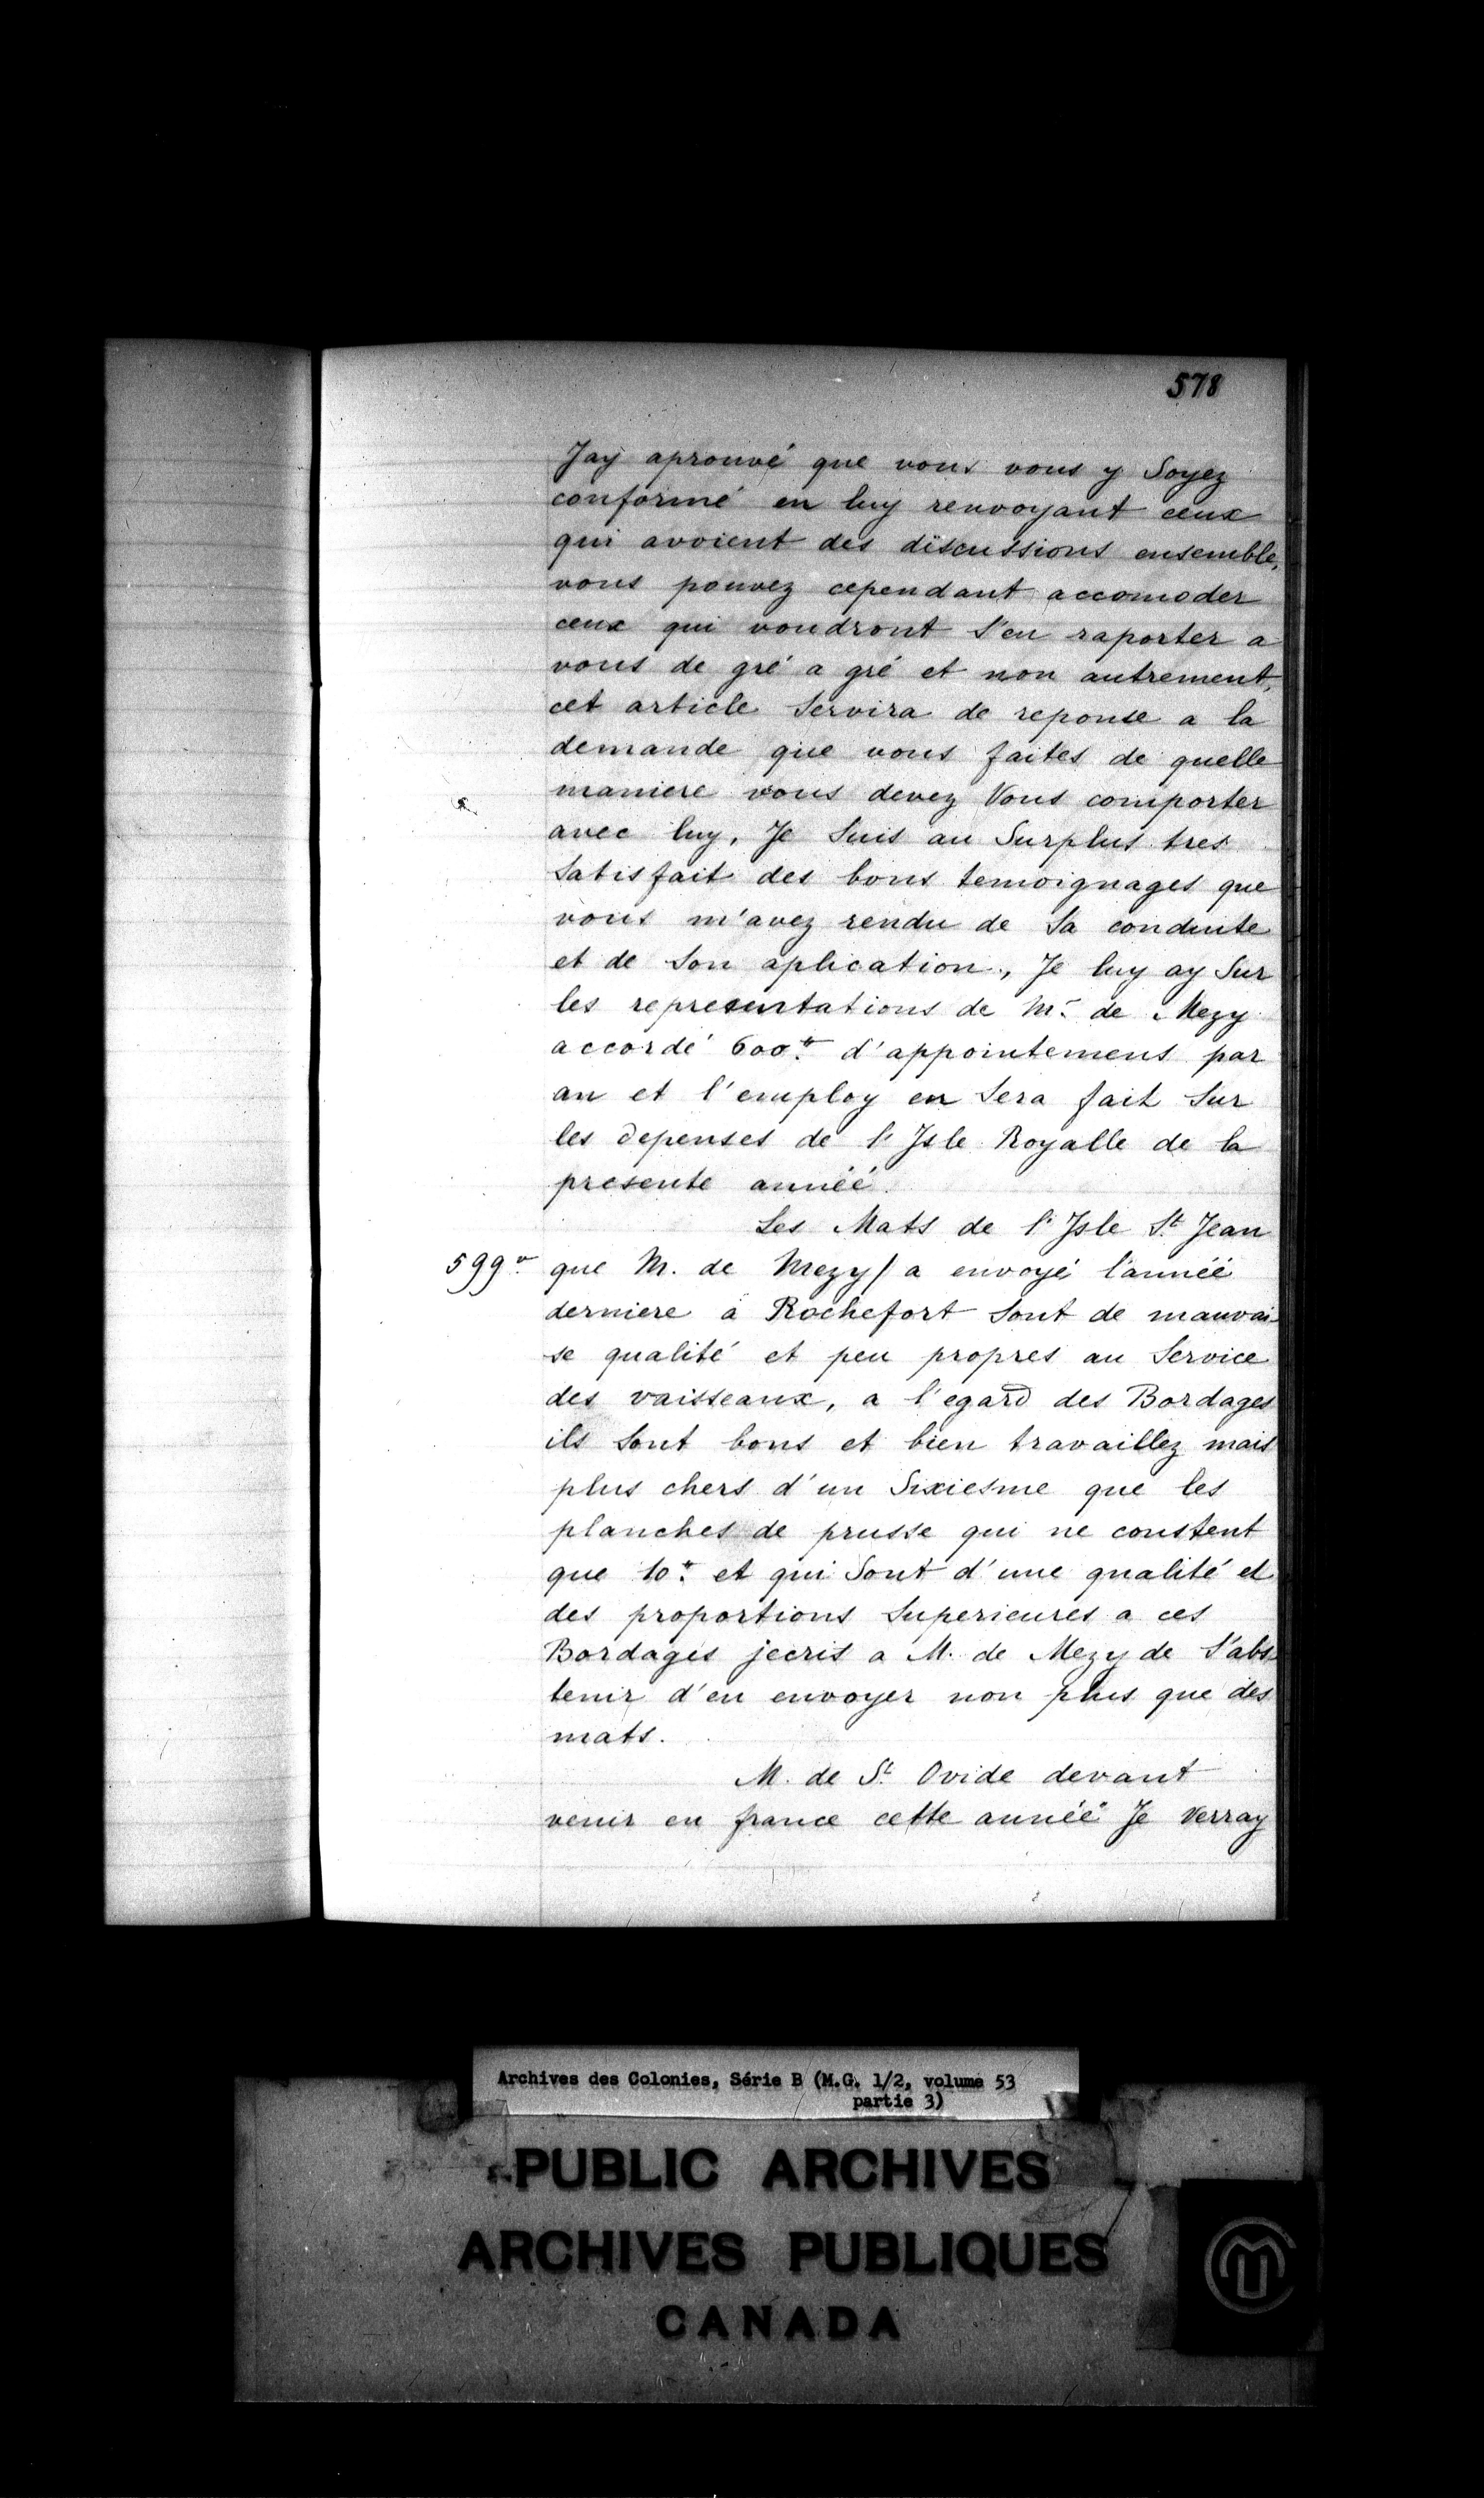 578
Jay aprouvé que vous vous y Soyez
conformé en luy renvoyant ceux
qui avoient des discussions ensemble,
vous pouvez cependant accomoder
ceux qui voudront S'en raporter a
vous de gré a gré et non autrement,
cet article Servira de reponse a la
demande que vous faites de quelle
maniere vous devez Vous comporter
avec luy, Je Suis au Surplus tres
Satisfait des bons temoignages que
vous m'avez rendu de Sa conduite
et de Son aplication, Je luy ay Sur
les representations de Mr. de Mezy
accordé 600tt d'appointemens par
an et l'employ en Sera fait Sur
les depenses de l'Isle Royalle de la
presente année.
Les Mats de l'Isle St Jean
599vo que M. de Mezy/ a envoyé l'année
derniere a Rochefort Sont de mauvai-
se qualité et peu propres au Service
des vaisseaux, a l'egard des Bordages
ils Sont bons et bien travaillez mais
plus chers d'un Sixiesme que les
planches de prusse qui ne coustent
que 10tt et qui Sont d'une qualité et
des proportions Superieures a ces
Bordages jecris a M. de Mezy de S'abs-
tenir d'en envoyer non plus que des
mats.
M. de St Ovide devant
venir en france cette année Je Verray
Archives des Colonies, Série B (M.G. 1/2, volume 53
partie 3)
PUBLIC ARCHIVES
ARCHIVES PUBLIQUES
CANADA